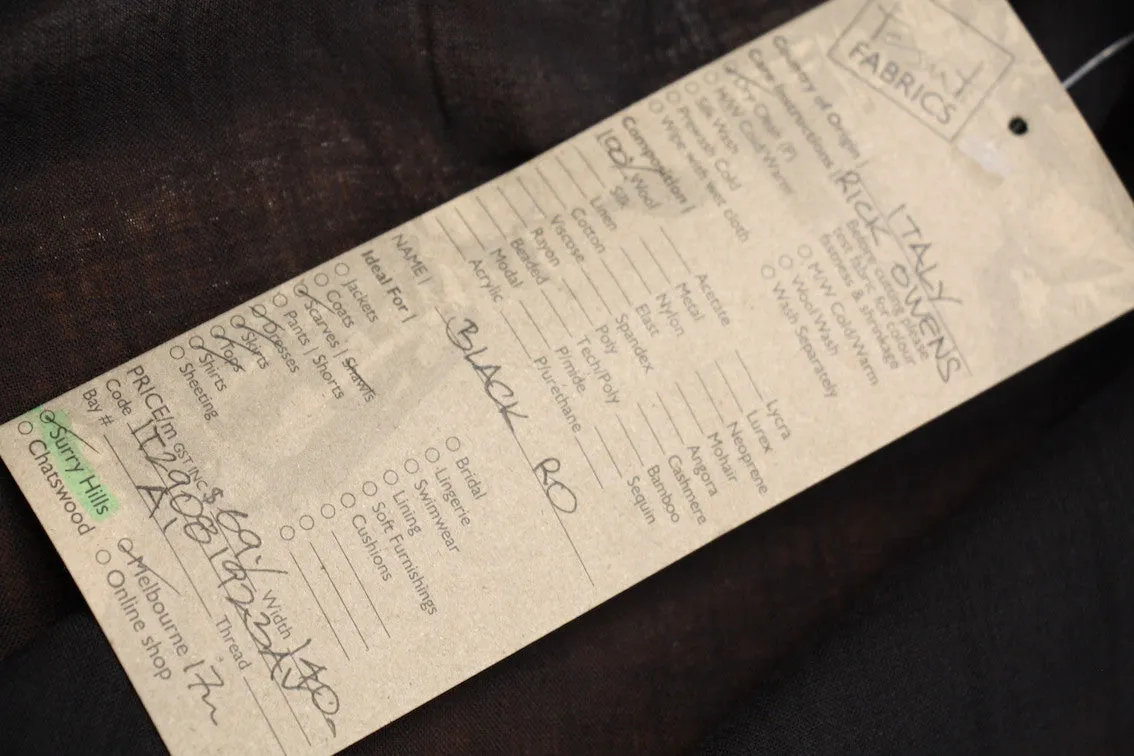 FABRICS
Country of Origin | ITALY
RICK OWENS
Care Instructions | Before cutting please test fabric for colour fastness & shrinkage
Dry Clean (P)
M/W Cold/Warm
H/W Cold/Warm
Wool Wash
Silk Wash
Wash Separately
Prewash Cold
Wipe with wet cloth
Composition |
100% Wool
Silk
Linen
Cotton
Viscose
Rayon
Beaded
Modal
Acrylic
Acetate
Metal
Nylon
Elast
Spandex
Poly
Tech/Poly
P/mide
P/urethane
Lycra
Lurex
Neoprene
Mohair
Angora
Cashmere
Bamboo
Sequin
NAME | BLACK RO
Ideal For |
Jackets
Coats
Scarves | Shawls
Pants | Shorts
Dresses
Skirts
Tops
Shirts
Sheeting
Bridal
Lingerie
Swimwear
Lining
Soft Furnishings
Cushions
PRICE/m GST INC $ 69 Width 140
Code
Bay # A. Thread
Surry Hills
Melbourne 17m
Chatswood
Online shop